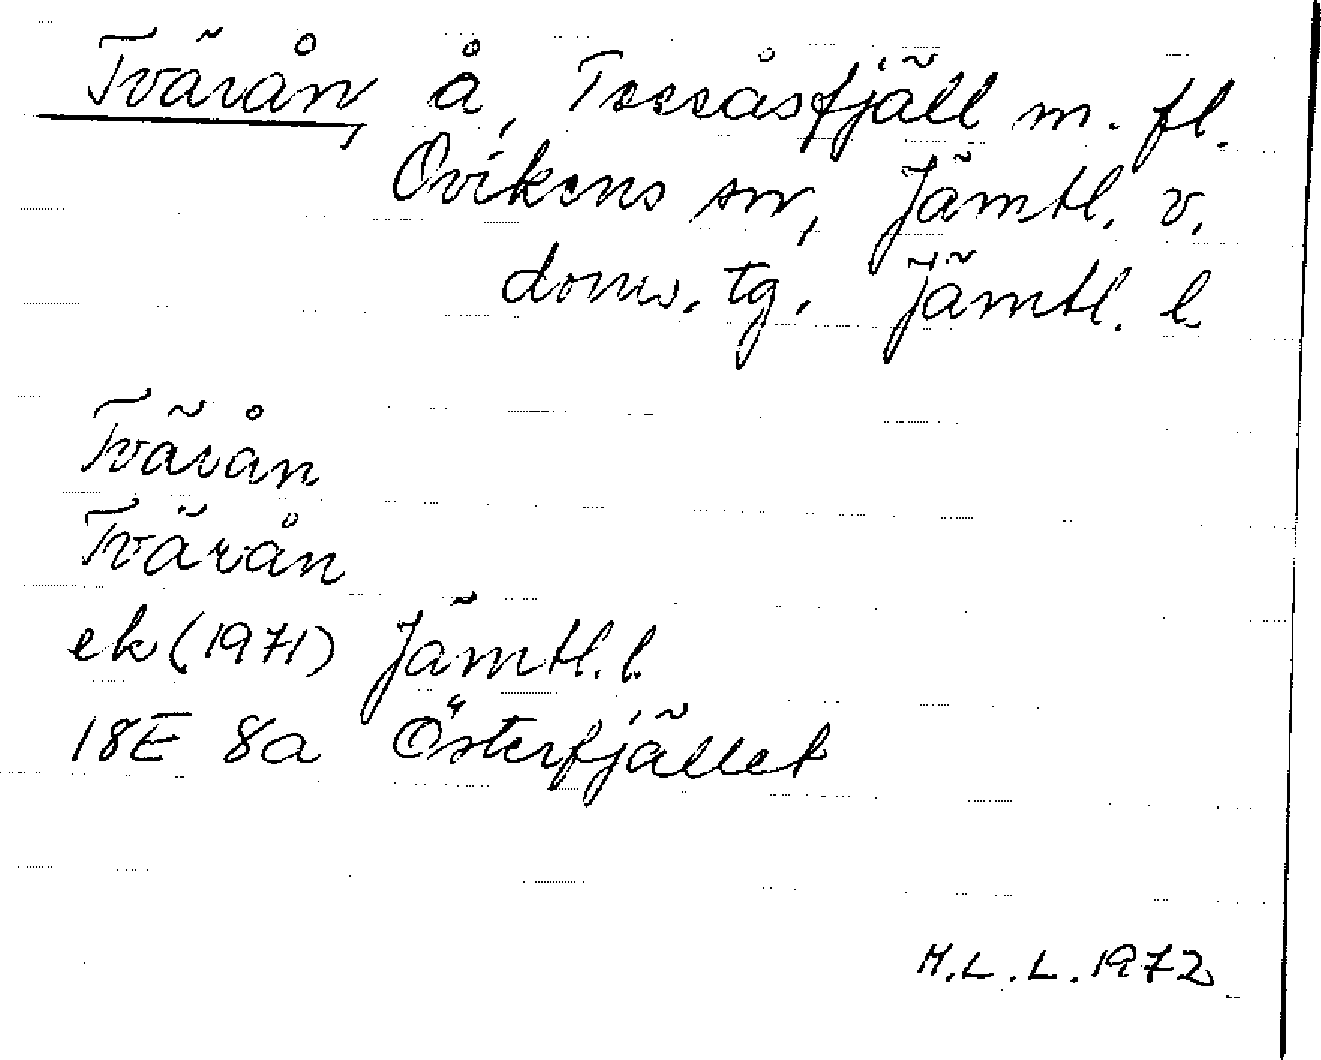 Tvärån, å, Tossåsfjäll m. fl.
Ovikens sn, Jämtl. v.
doms. tg. Jämtl. l
Tvärån
Tvärån
ek (1971) Jämtl. l.
18E 8a Österfjället
M.L.L. 1972